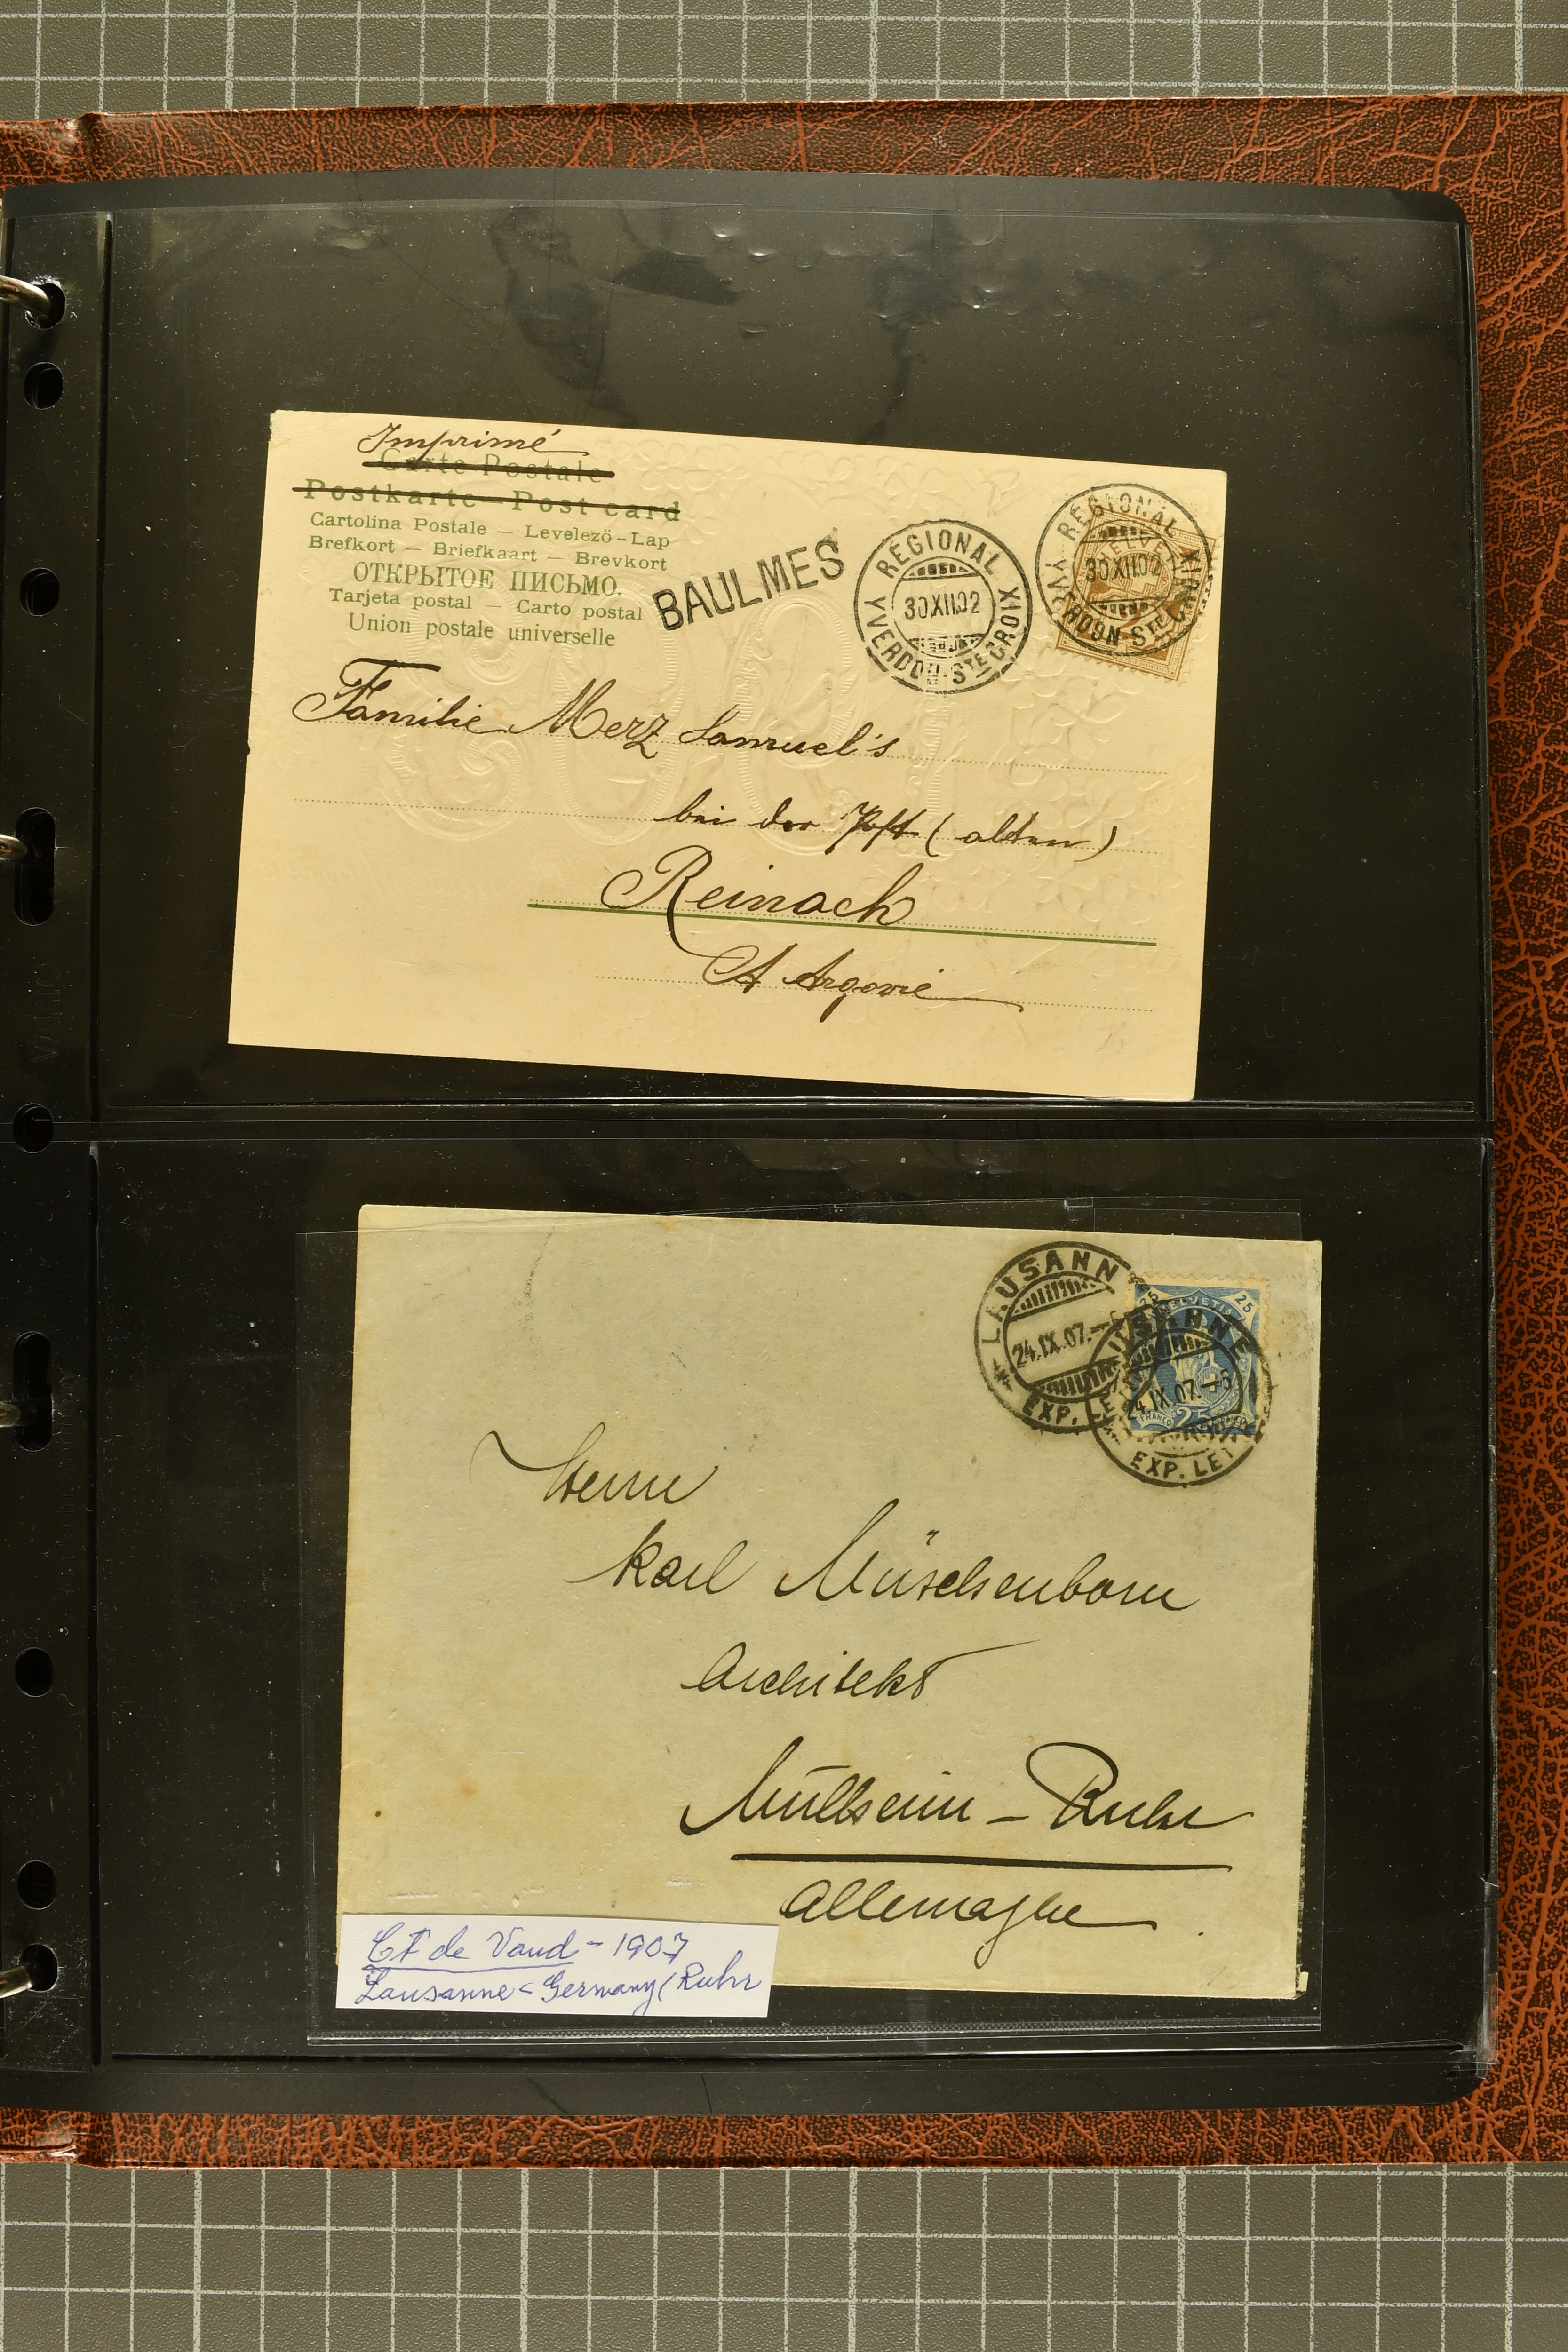 Imprimé
Carte Postale
Postkarte - Post card
Cartolina Postale — Levelező-Lap
Brefkort — Briefkaart — Brevkort
ОТКРЫТОЕ ПИСЬМО.
Tarjeta postal — Carto postal
Union postale universelle
BAULMES
RÉGIONAL
30XII.02
YVERDON-STE CROIX
RÉGIONAL
HELVETIA
30XII.02
YVERDON-STE CROIX
Familie Merz Samuel's
bei der Post (alten)
Reinach
Argovie
LAUSANN
24.IX.07.
EXP. LE
25 HELVETIA 25
LAUSANNE
24.IX.07.—5
FRANCO 25 FRANCO
EXP. LET
Herrn
Karl Müschenborn
Architekt
Mülheim - Ruhr
Allemagne
Ct de Vaud - 1907
Lausanne < Germany (Ruhr